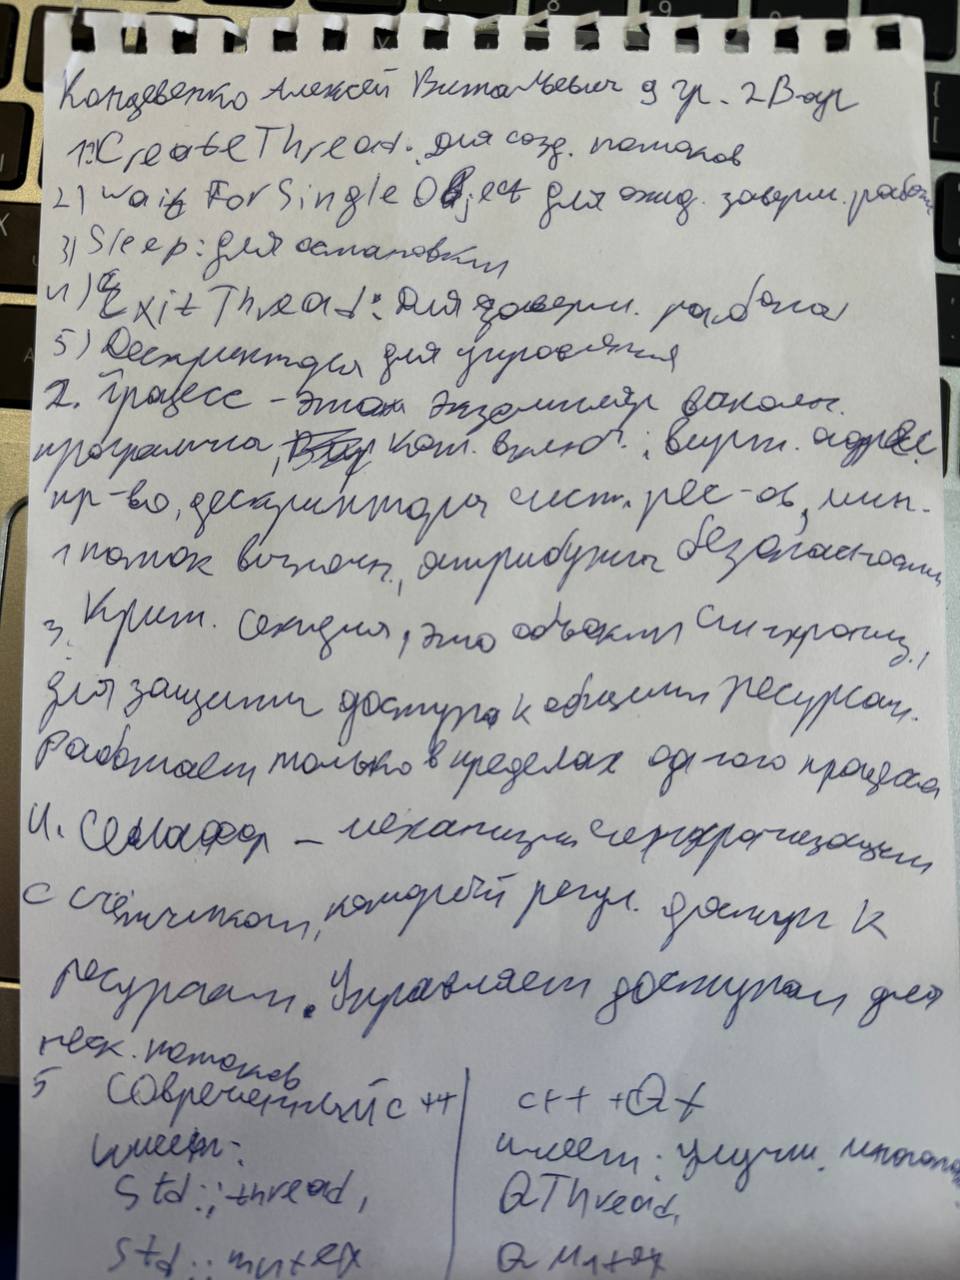 Концевенко Алексей Витальевич 9 гр. 2 Вар
1. CreateThread: для созд. потоков
2) WaitForSingleObject для ожид. заверш. работы
3) Sleep: для остановки
4) ExitThread: для заверш. работы
5) Дескрипторы для управления
2. Процесс - это экземпляр выполн.
программы, кот. включ.: вирт. адрес.
пр-во, дескрипторы сист. рес-ов, мин.
1 поток выполн., атрибуты безопасности
3. Крит. секция, это объекты синхрониз.,
для защиты доступа к общим ресурсам.
Работает только в пределах одного процесса
4. Семафор - механизм синхронизации
с счётчиком, который регул. доступ к
ресурсам. Управляет доступом для
неск. потоков
5 Современный C++ | C++ + Qt
имеет: | имеет: улучш.
std::thread, | QThread,
std::mutex | QMutex